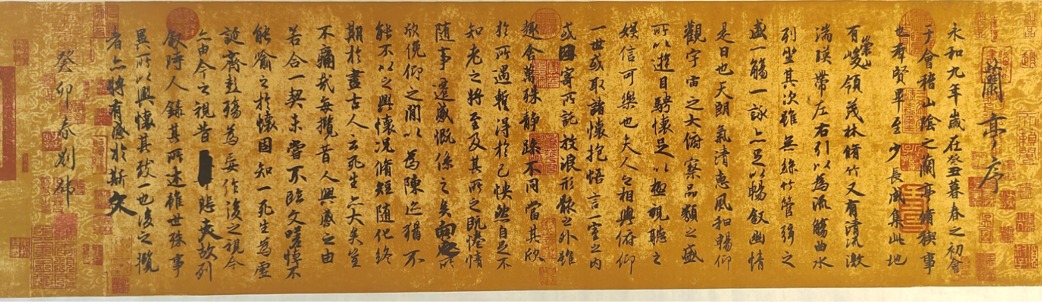 蘭亭序
永和九年歲在癸丑暮春之初會
于會稽山陰之蘭亭脩稧事
也羣賢畢至少長咸集此地
有崇山峻領茂林脩竹又有清流激
湍暎帶左右引以為流觴曲水
列坐其次雖無絲竹管弦之
盛一觴一詠亦足以暢敘幽情
是日也天朗氣清惠風和暢仰
觀宇宙之大俯察品類之盛
所以遊目騁懷足以極視聽之
娛信可樂也夫人之相與俯仰
一世或取諸懷抱悟言一室之內
或因寄所託放浪形骸之外雖
趣舍萬殊靜躁不同當其欣
於所遇暫得於己怏然自足不
知老之將至及其所之既惓情
隨事遷感慨係之矣向之所
欣俛仰之間以為陳迹猶不
能不以之興懷況脩短隨化終
期於盡古人云死生亦大矣豈
不痛哉每攬昔人興感之由
若合一契未嘗不臨文嗟悼不
能喻之於懷固知一死生為虛
誕齊彭殤為妄作後之視今
亦由今之視昔悲夫故列
敘時人錄其所述雖世殊事
異所以興懷其致一也後之攬
者亦將有感於斯文
癸卯春